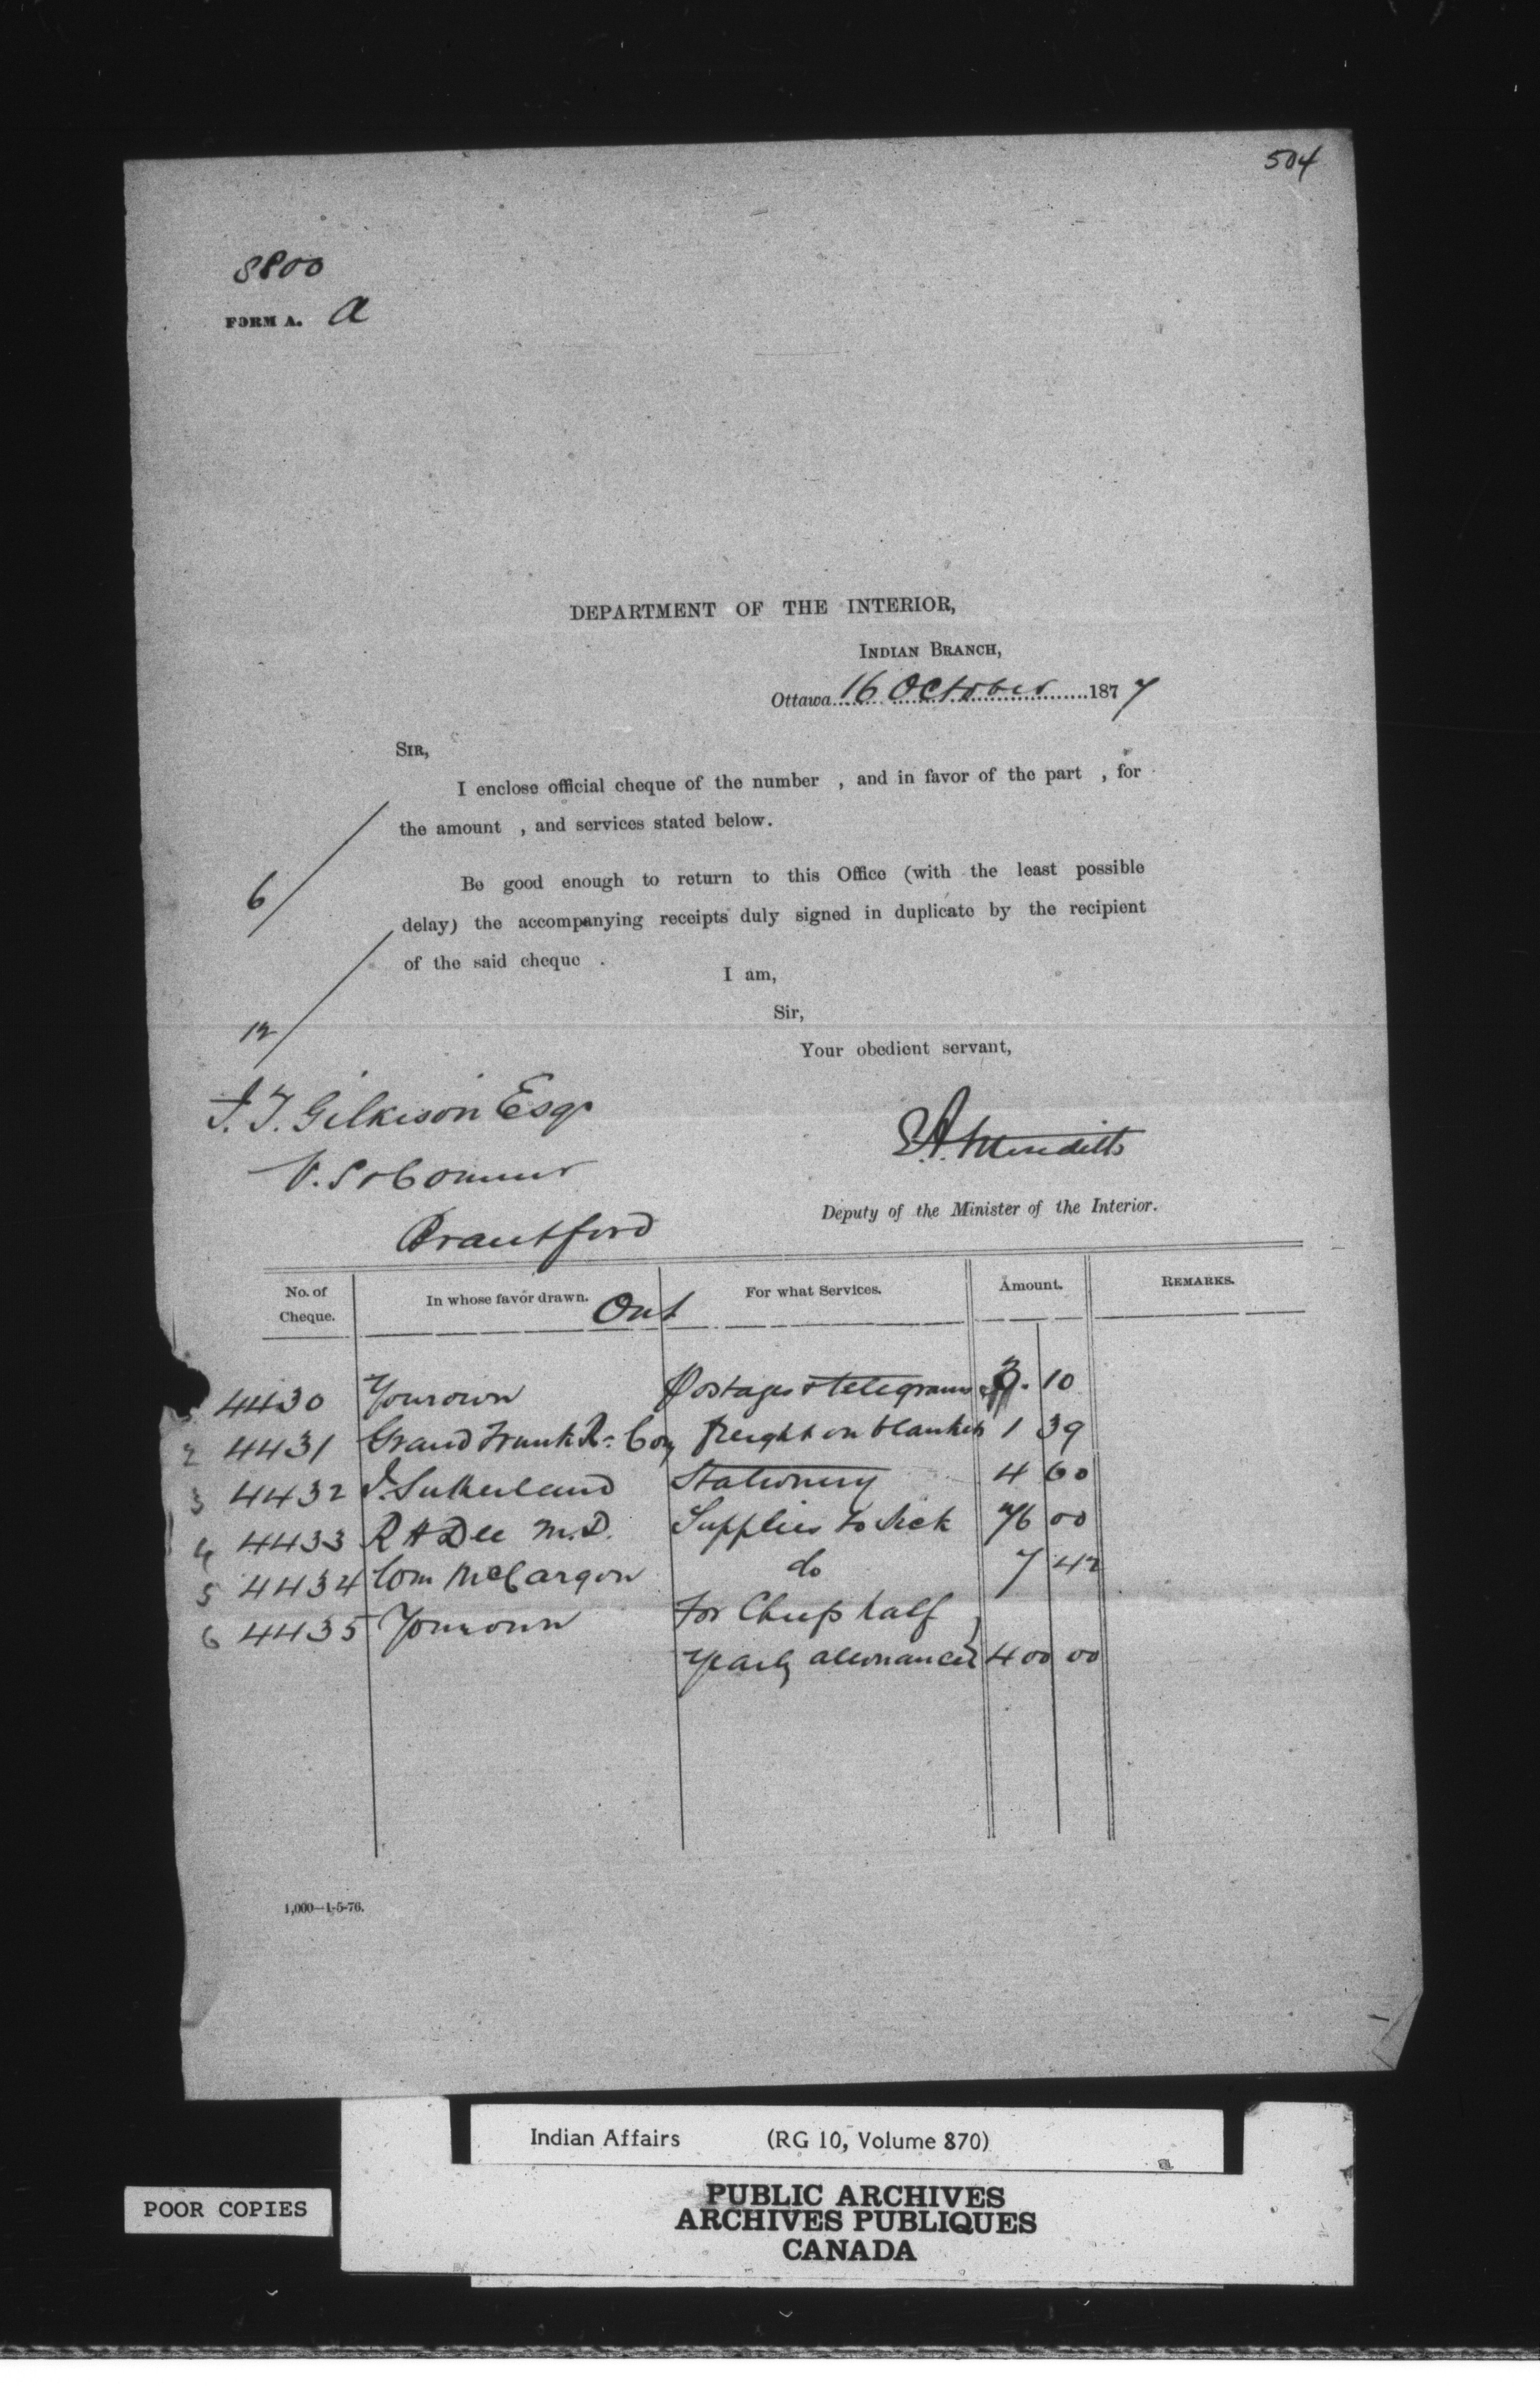 504
8800
FORM A. a
DEPARTMENT OF THE INTERIOR,
INDIAN BRANCH,
Ottawa 16 October 1877
SIR,
I enclose official cheque of the number , and in favor of the part , for
the amount , and services stated below.
6
Be good enough to return to this Office (with the least possible
delay) the accompanying receipts duly signed in duplicate by the recipient
of the said cheque .
I am,
12
Sir,
Your obedient servant,
J. T. Gilkison Esqr
E.A. Meredith
V. S &
Deputy of the Minister of the Interior.
Brantford
Ont
No. of Cheque. In whose favor drawn. For what Services. Amount. REMARKS.
4430 Your own Postages & telegrams 3. 10
2 4431 Grand Trunk R. Coy freight on blankets 1 39
3 4432 J. Sutherland Stationery 4 60
4 4433 R H Dee M.D. Supplies to Sick 76 00
5 4434 Wm McCargow do 7 42
6 4435 Your own for Chiefs half
yearly allowances 400 00
1,000—1-5-76.
Indian Affairs (RG 10, Volume 870)
PUBLIC ARCHIVES
ARCHIVES PUBLIQUES
CANADA
POOR COPIES